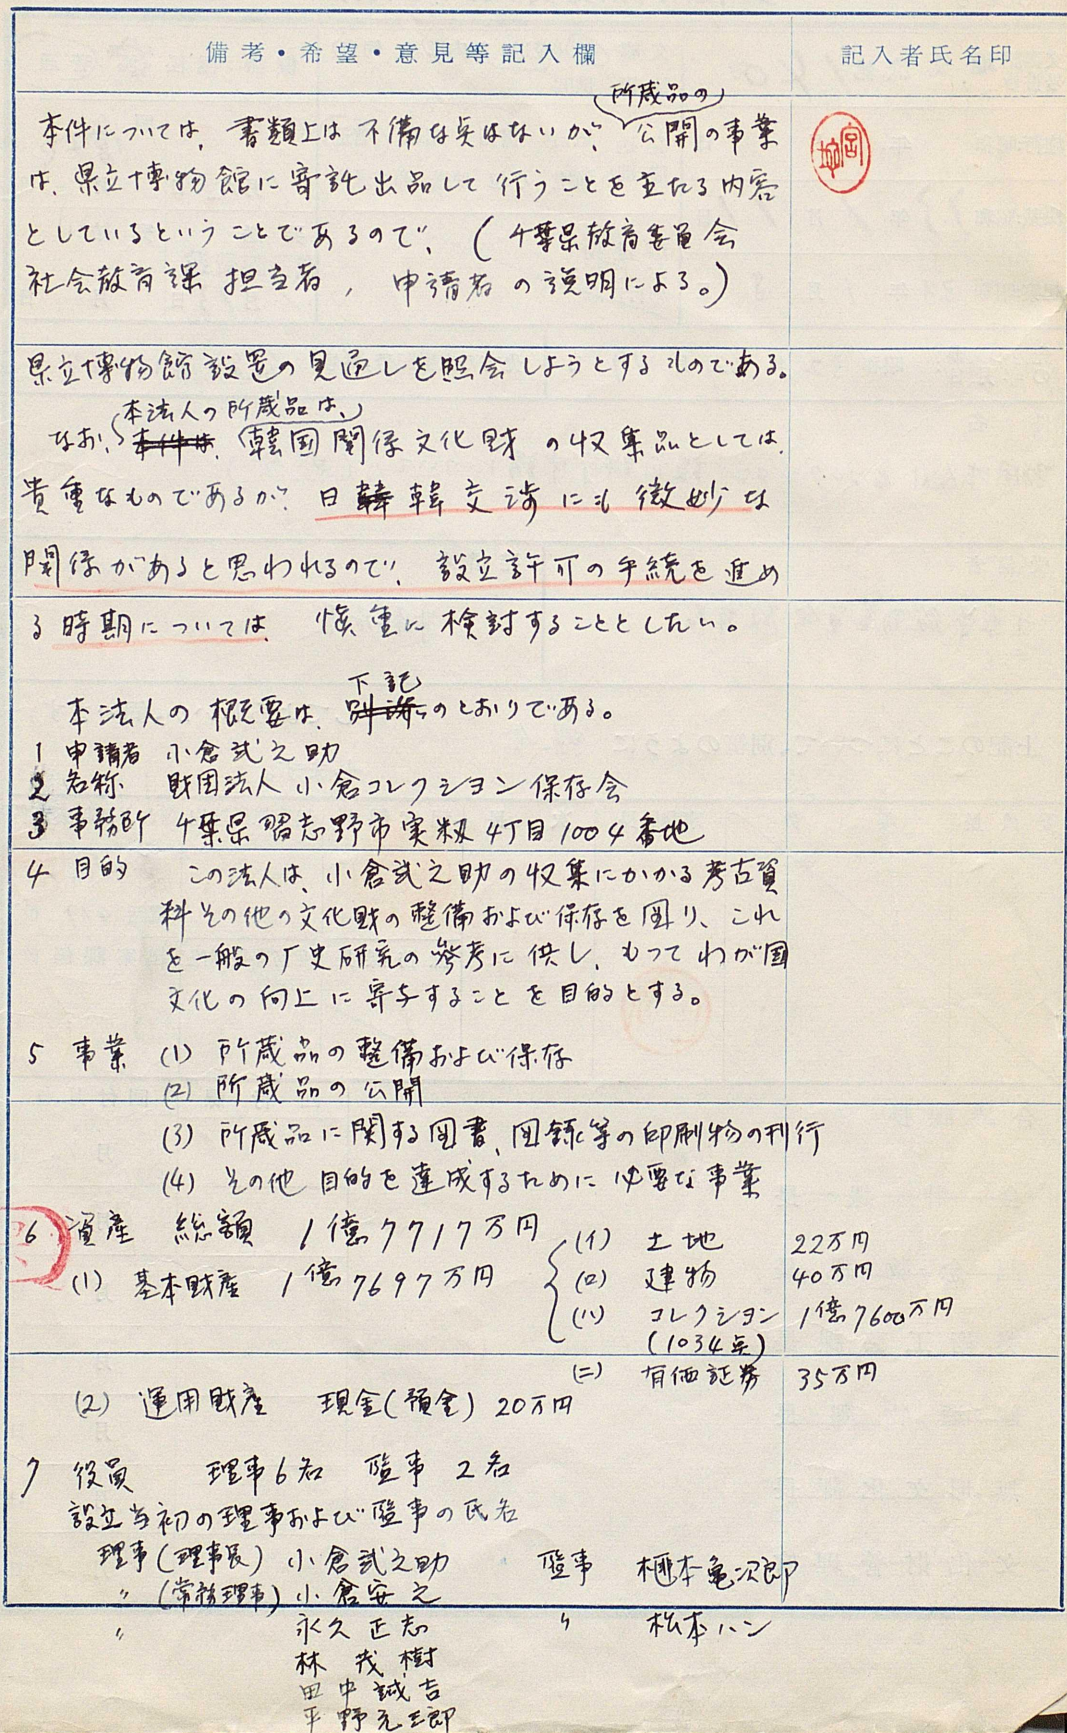 備考・希望・意見等記入欄
記入者氏名印
所蔵品の
本件については、書類上は不備な点はないが、公開の事業
は、県立博物館に寄託出品して行うことを主たる内容
としているということであるので、(千葉県教育委員会
社会教育課担当者, 申請者の説明による。)
県立博物館設置の見通しを照会しようとするものである。
本法人の所蔵品は、
なお、本件は、韓国関係文化財の収集品としては、
貴重なものであるが、日韓韓交渉にも微妙な
関係があると思われるので、設立許可の手続を進め
る時期については、慎重に検討することとしたい。
下記
本法人の概要は、別添のとおりである。
1 申請者 小倉武之助
2 名称 財団法人小倉コレクション保存会
3 事務所 千葉県習志野市実籾4丁目1004番地
4 目的 この法人は、小倉武之助の収集にかかる考古資
料その他の文化財の整備および保存を図り、これ
を一般の厂史研究の参考に供し、もつてわが国
文化の向上に寄与することを目的とする。
5 事業 (1) 所蔵品の整備および保存
(2) 所蔵品の公開
(3) 所蔵品に関する図書、図録等の印刷物の刊行
(4) その他目的を達成するために必要な事業
6 資産 総額 1億7717万円
(1) 基本財産 1億7697万円
(イ) 土地 22万円
(ロ) 建物 40万円
(ハ) コレクション 1億7600万円
(1034点)
(ニ) 有価証券 35万円
(2) 運用財産 現金(預金) 20万円
7 役員 理事6名 監事2名
設立当初の理事および監事の氏名
理事(理事長) 小倉武之助 監事 榧本亀次郎
〃(常務理事) 小倉安之
〃 永久正志 〃 松本ハン
林茂樹
田中誠吉
平野元三郎